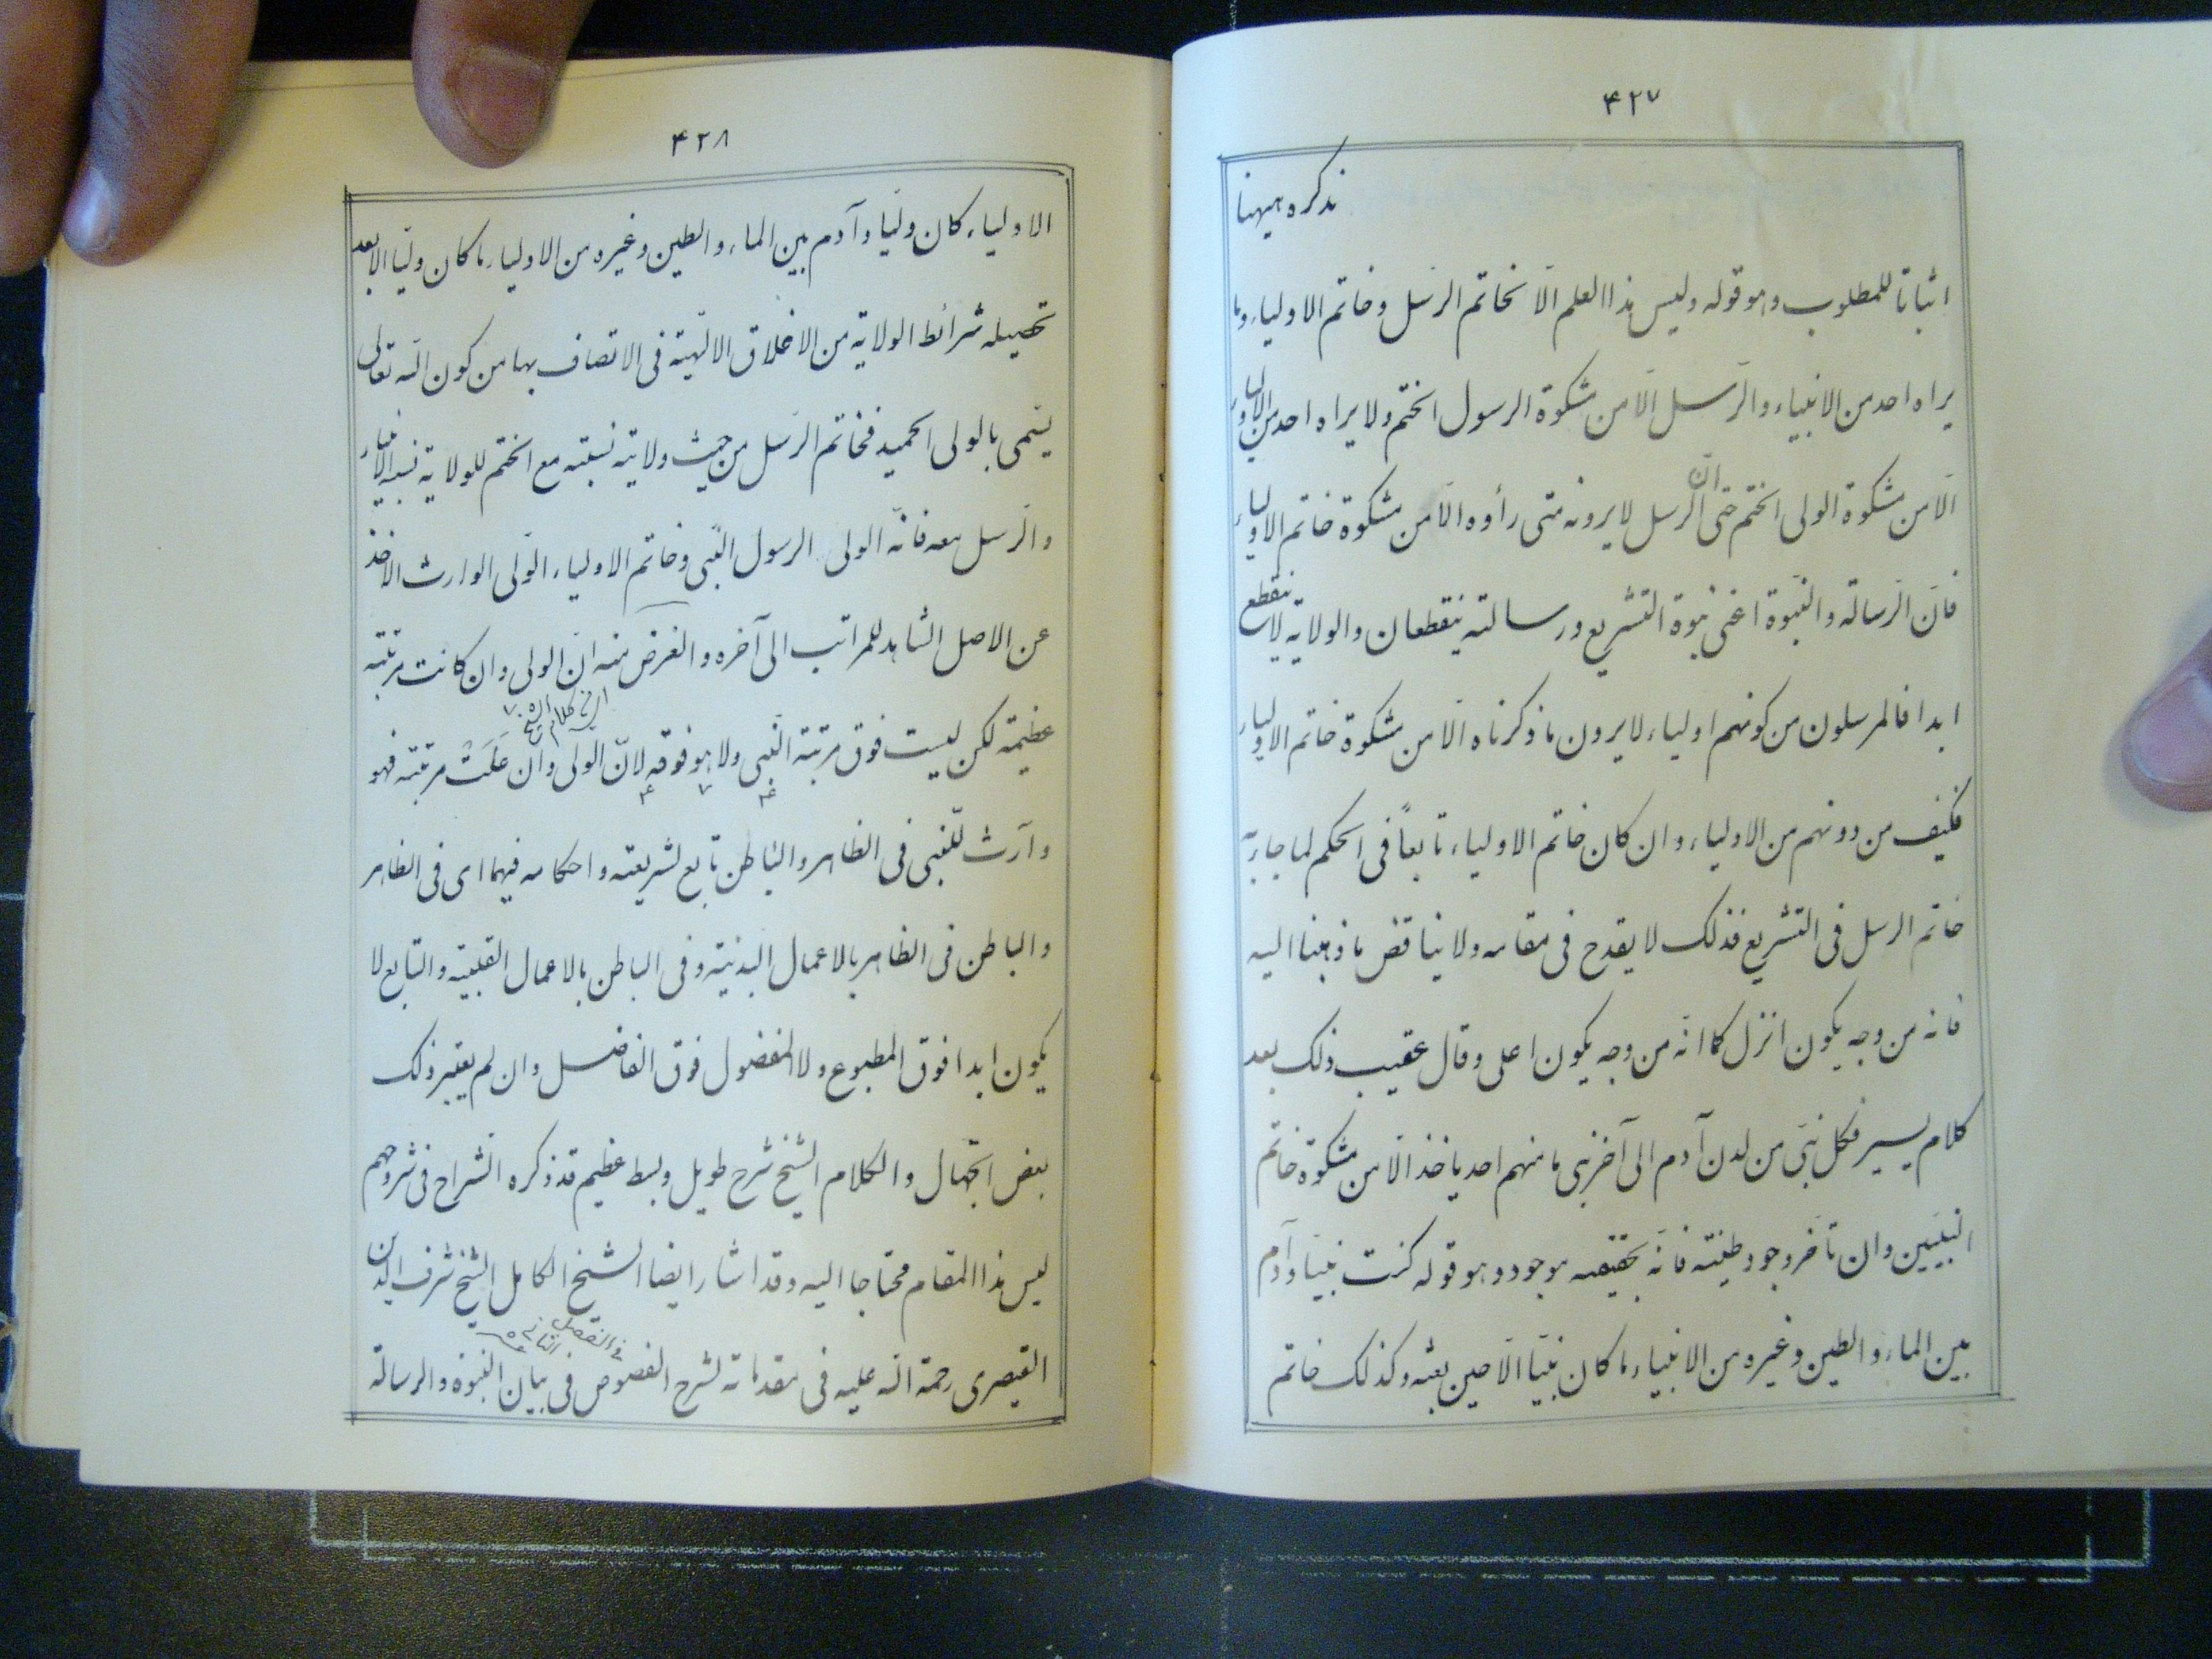 ۴۲۷
نذكره هيهنا
اثباتا للمطلوب وهو قوله وليس هذا العلم الّا لخاتم الرّسل وخاتم الاولياء وما
يراه احد من الانبياء والرّسل الّا من مشكوة الرسول الختم ولا يراه احد من الاولياء
الّا من مشكوة الولى الختم حتى انّ الرسل لا يرونه متى رأوه الّا من مشكوة خاتم الاولياء
فانّ الرّسالة والنّبوة اعنى نبوة التّشريع ورسالته ينقطعان والولاية لا ينقطع
ابدا فالمرسلون من كونهم اولياء لا يرون ما ذكرناه الّا من مشكوة خاتم الاولياء
فكيف من دونهم من الاولياء وان كان خاتم الاولياء تابعاً فى الحكم لما جاء به
خاتم الرسل فى التشريع فذلك لا يقدح فى مقامه ولا يناقض ما ذهبنا اليه
فانه من وجه يكون انزل كما انّه من وجه يكون اعلى وقال عقيب ذلك بعد
كلام يسير فكل نبّى من لدن آدم الى آخر نبى ما منهم احد ياخذ الّا من مشكوة خاتم
النبيّين وان تأخر وجود طينته فانّه بحقيقته موجود وهو قوله كنت نبيّا وآدم
بين الماء والطين وغيره من الانبياء ما كان نبيّا الّا حين بعثه وكذلك خاتم
۴۲۸
الاولياء كان وليّا وآدم بين الماء والطين وغيره من الاولياء ما كان وليّا الا بعد
تحصيله شرائط الولاية من الاخلاق الالهيّة فى الاتصاف بها من كون الله تعالى
يسّمى بالولى الحميد فخاتم الرّسل من حيث ولايته نسبته مع الختم للولاية نسبة الانبياء
والرّسل معه فانّه الولى الرسول النّبى وخاتم الاولياء الوّلى الوارث الاخذ
عن الاصل الشاهد للمراتب الى آخره والغرض منه انّ الولى وان كانت مرتبته
عظيمة لكن ليست فوق مرتبة النّبى ولا هو فوقه لانّ الولى وان عَلَتْ مرتبته فهو
وارث للنّبى فى الظاهر والباطن تابع لشريعته واحكامه فيهما اى فى الظاهر
والباطن فى الظاهر بالاعمال البدنيّة وفى الباطن بالاعمال القلبيّة والتابع لا
يكون ابدا فوق المطبوع ولا المفضول فوق الفاضل وان لم يعتبر ذلك
بعض الجّهال والكلام الشيخ شرح طويل وبسط عظيم قد ذكره الشراح فى شروحهم
ليس هذا المقام محتاجا اليه وقد اشار ايضا الشيخ الكامل الشيخ شرف الدين
فى الفصل الثانى
القيصرى رحمة الله عليه فى مقدماته لشرح الفصوص فى بيان النبوة والرسالة